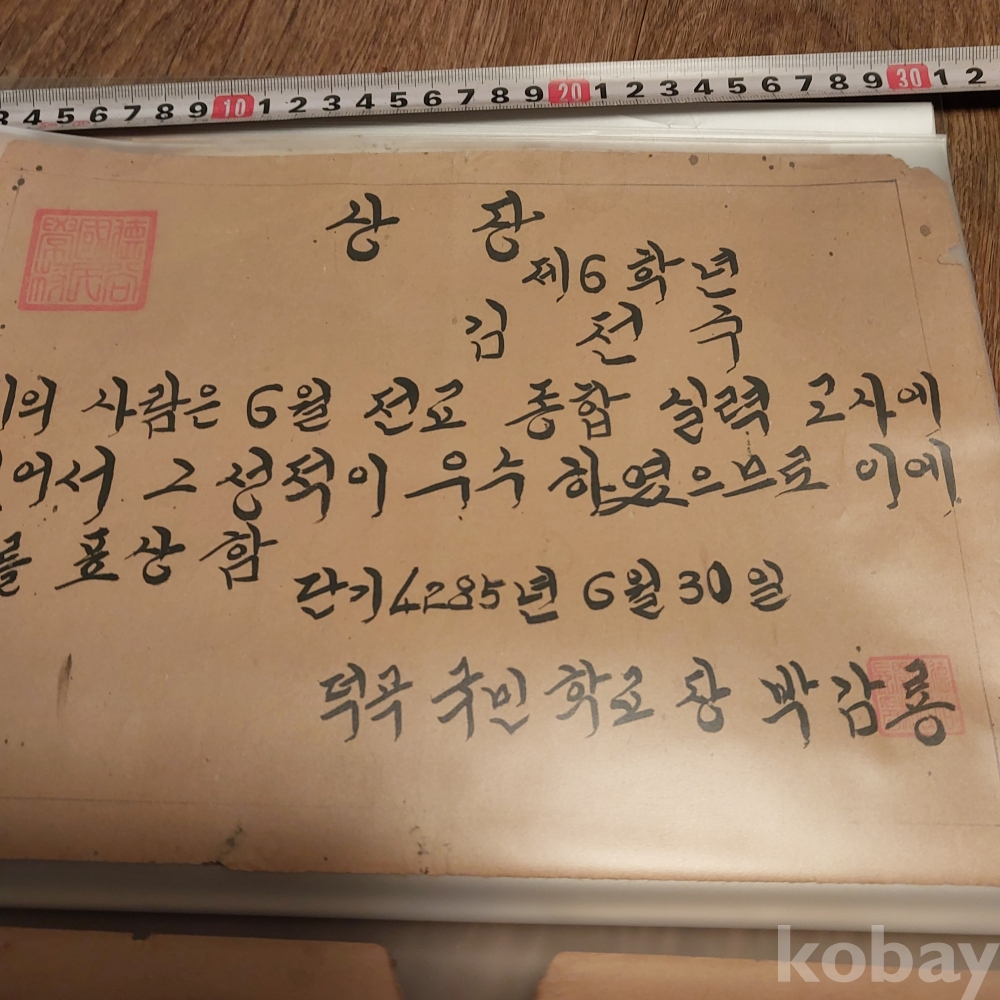 3 4 5 6 7 8 9 10 1 2 3 4 5 6 7 8 9 20 1 2 3 4 5 6 7 8 9 30 1 2
德谷國民學校
상 장
제6학년
김 전 구
의 사람은 6월 전교 종합 실력 고사에
어서 그 성적이 우수 하였으므로 이에
를 표상 함
단기4285년 6월 30일
덕곡 국민 학교 장 박감룡
kobay